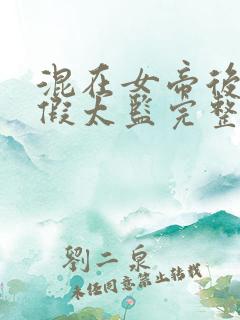 混在女帝後
假太監完整
劉二泉
未经同意禁止转载